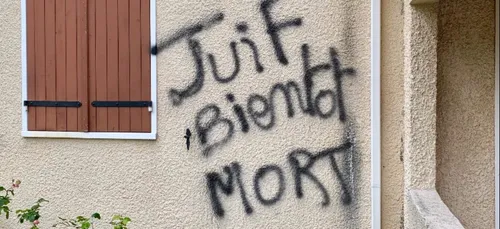 Juif
Bientot
Mort